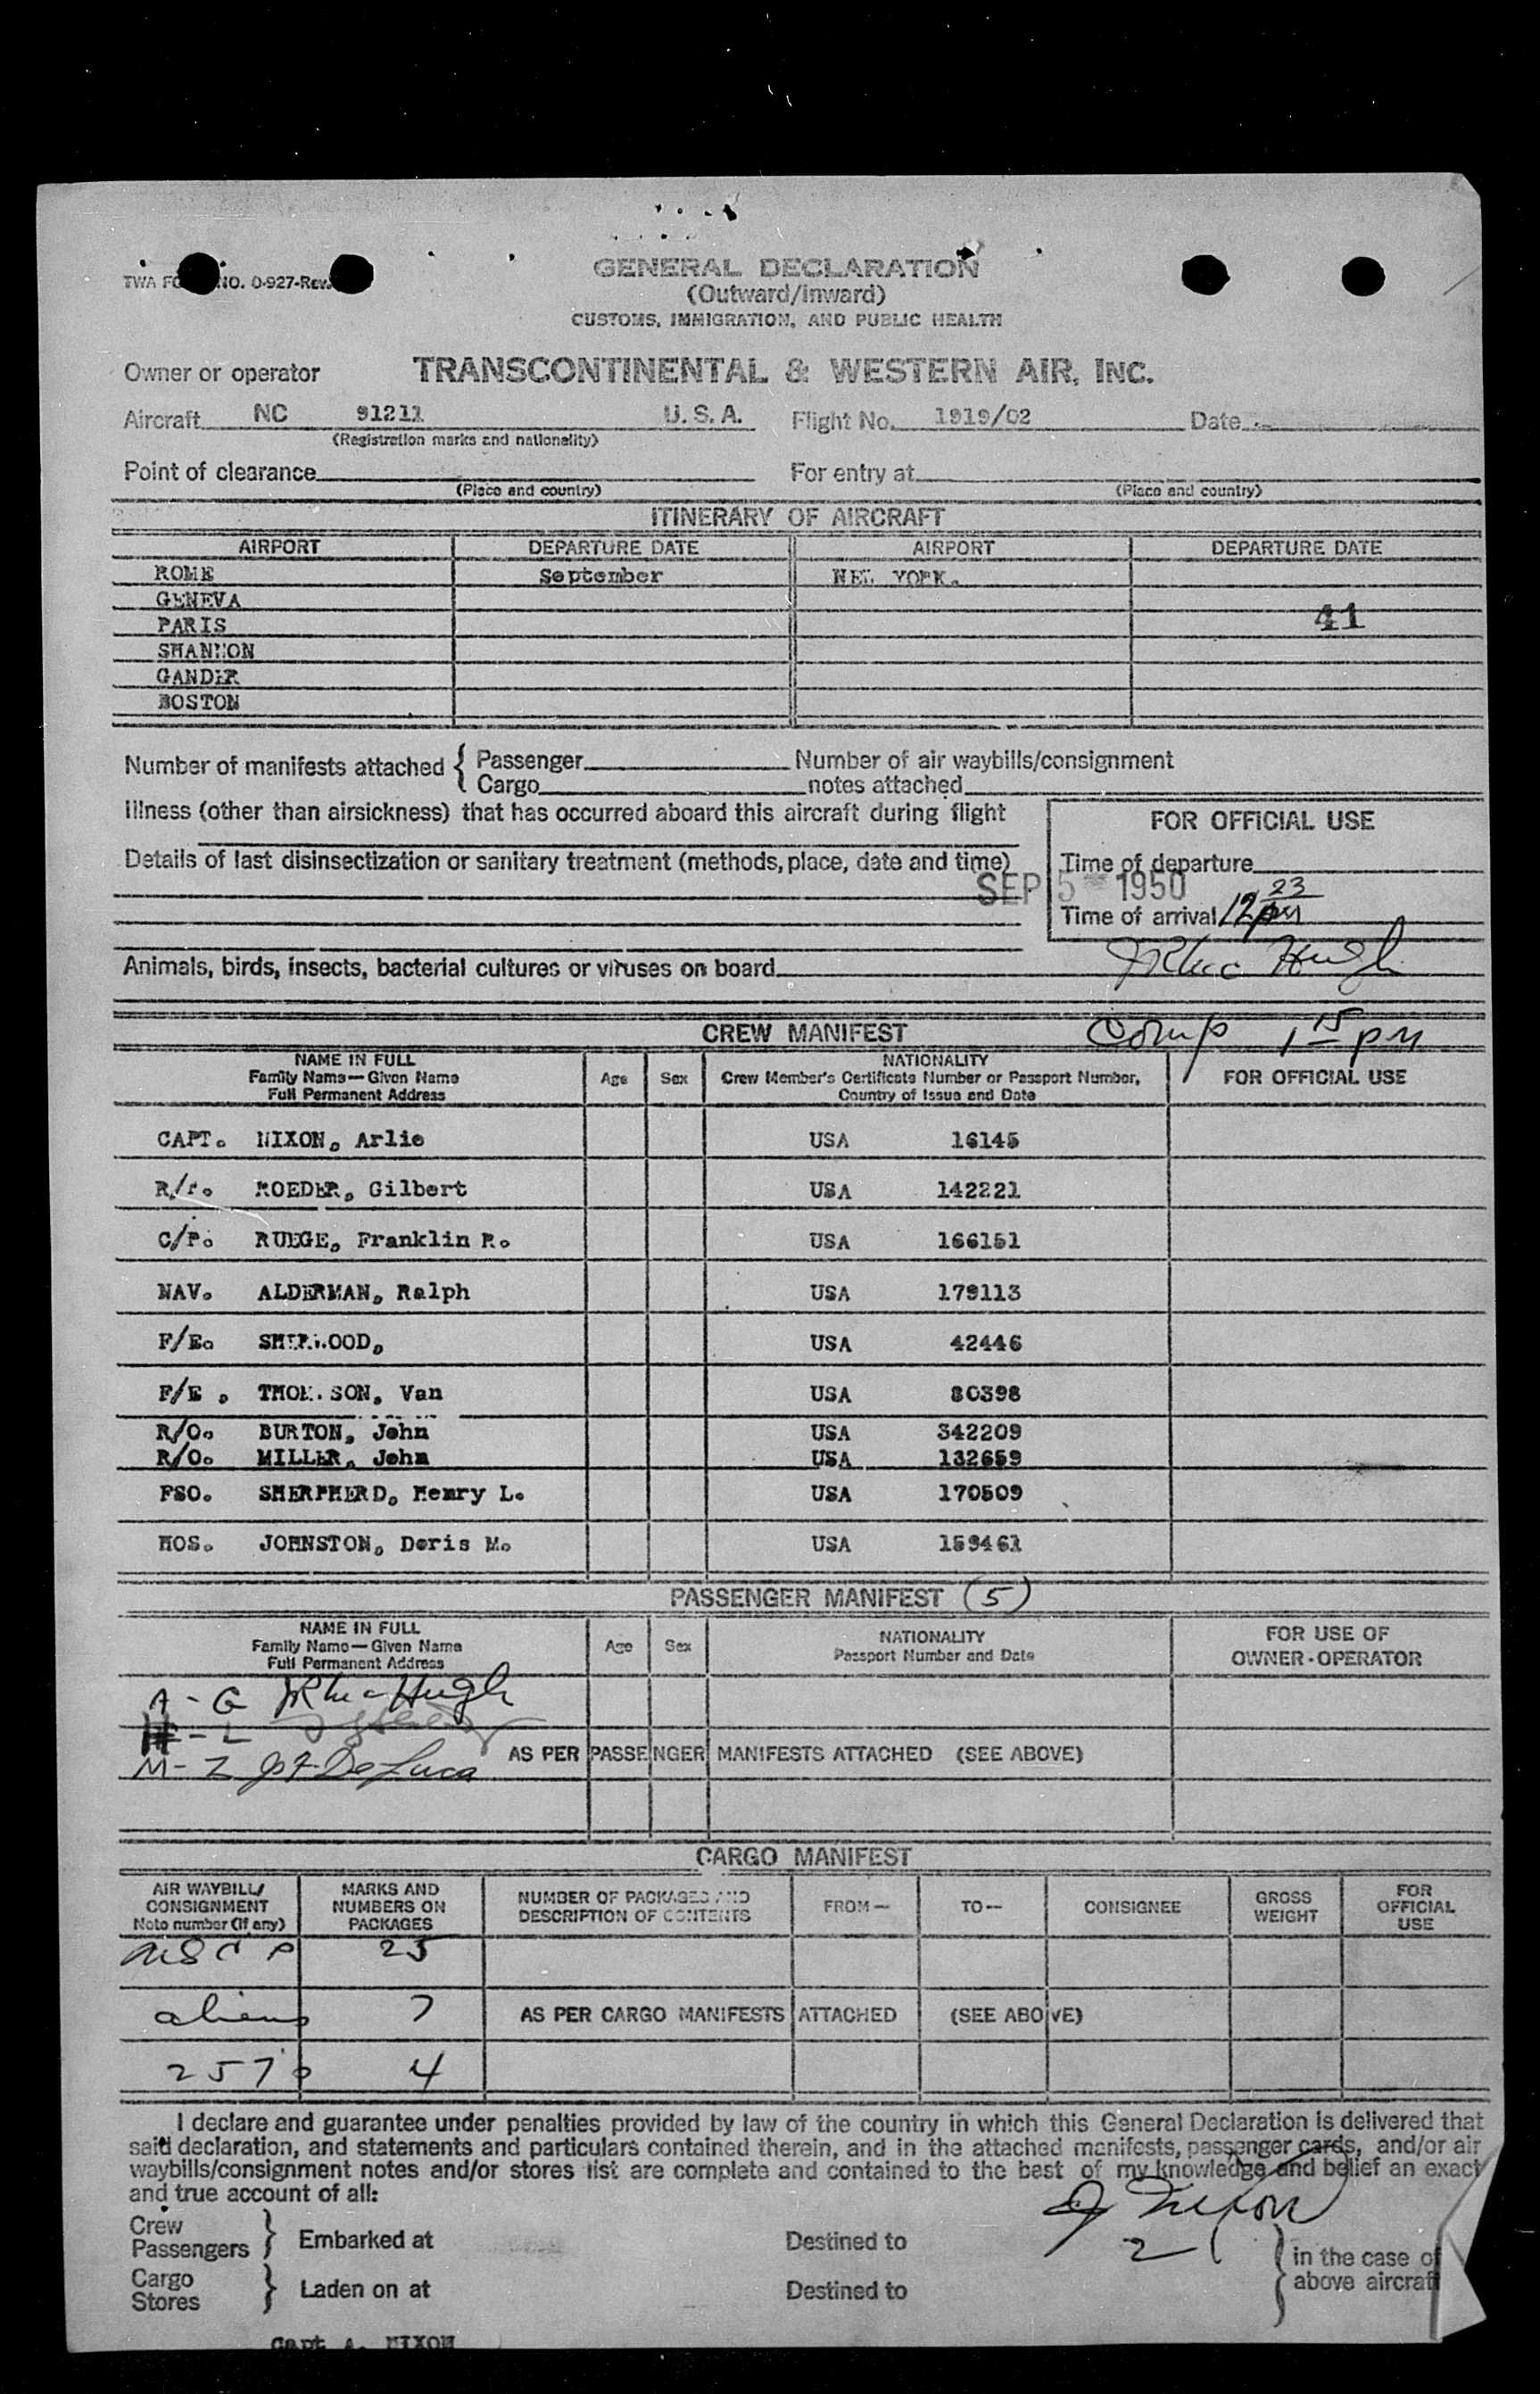 GENERAL DECLARATION
TWA NO. 0-927-Rev.
(Outward/Inward)
CUSTOMS, IMMIGRATION, AND PUBLIC HEALTH
Owner or operator TRANSCONTINENTAL & WESTERN AIR, INC.
Aircraft NC 91211 U.S.A. Flight No. 1919/02 Date
(Registration marks and nationality)
Point of clearance For entry at
(Place and country) (Place and country)
ITINERARY OF AIRCRAFT
AIRPORT DEPARTURE DATE AIRPORT DEPARTURE DATE
ROME September NEW YORK.
GENEVA
PARIS 41
SHANNON
GANDER
BOSTON
Number of manifests attached { Passenger Number of air waybills/consignment
Cargo notes attached
Illness (other than airsickness) that has occurred aboard this aircraft during flight
FOR OFFICIAL USE
Details of last disinsectization or sanitary treatment (methods, place, date and time)
Time of departure
SEP 5 1950
Time of arrival 12 23 pm
Animals, birds, insects, bacterial cultures or viruses on board
CREW MANIFEST Comp 1 15 pm
NAME IN FULL
Family Name—Given Name
Full Permanent Address
Age Sex
NATIONALITY
Crew Member's Certificate Number or Passport Number,
Country of Issue and Date
FOR OFFICIAL USE
CAPT. NIXON, Arlie USA 16145
ROEDER, Gilbert USA 142221
C/P. RUEGE, Franklin R. USA 166151
NAV. ALDERMAN, Ralph USA 179113
F/E. SHERWOOD, USA 42446
F/E. THOMPSON, Van USA 80398
R/O. BURTON, John USA 342209
R/O. MILLER, John USA 132659
FSO. SHERPHERD, Henry L. USA 170509
HOS. JOHNSTON, Doris M. USA 159461
PASSENGER MANIFEST (5)
NAME IN FULL
Family Name—Given Name
Full Permanent Address
Age Sex
NATIONALITY
Passport Number and Date
FOR USE OF
OWNER-OPERATOR
A - G
H - L
M - Z
AS PER PASSENGER MANIFESTS ATTACHED (SEE ABOVE)
CARGO MANIFEST
AIR WAYBILL/
CONSIGNMENT
Note number (if any)
MARKS AND
NUMBERS ON
PACKAGES
NUMBER OF PACKAGES AND
DESCRIPTION OF CONTENTS
FROM— TO— CONSIGNEE
GROSS
WEIGHT
FOR
OFFICIAL
USE
25
aliens 7 AS PER CARGO MANIFESTS ATTACHED (SEE ABOVE)
257 4
I declare and guarantee under penalties provided by law of the country in which this General Declaration is delivered that
said declaration, and statements and particulars contained therein, and in the attached manifests, passenger cards, and/or air
waybills/consignment notes and/or stores list are complete and contained to the best of my knowledge and belief an exact
and true account of all:
Crew
Passengers } Embarked at Destined to
Cargo
Stores } Laden on at Destined to
} in the case of
above aircraft
Capt A. NIXON